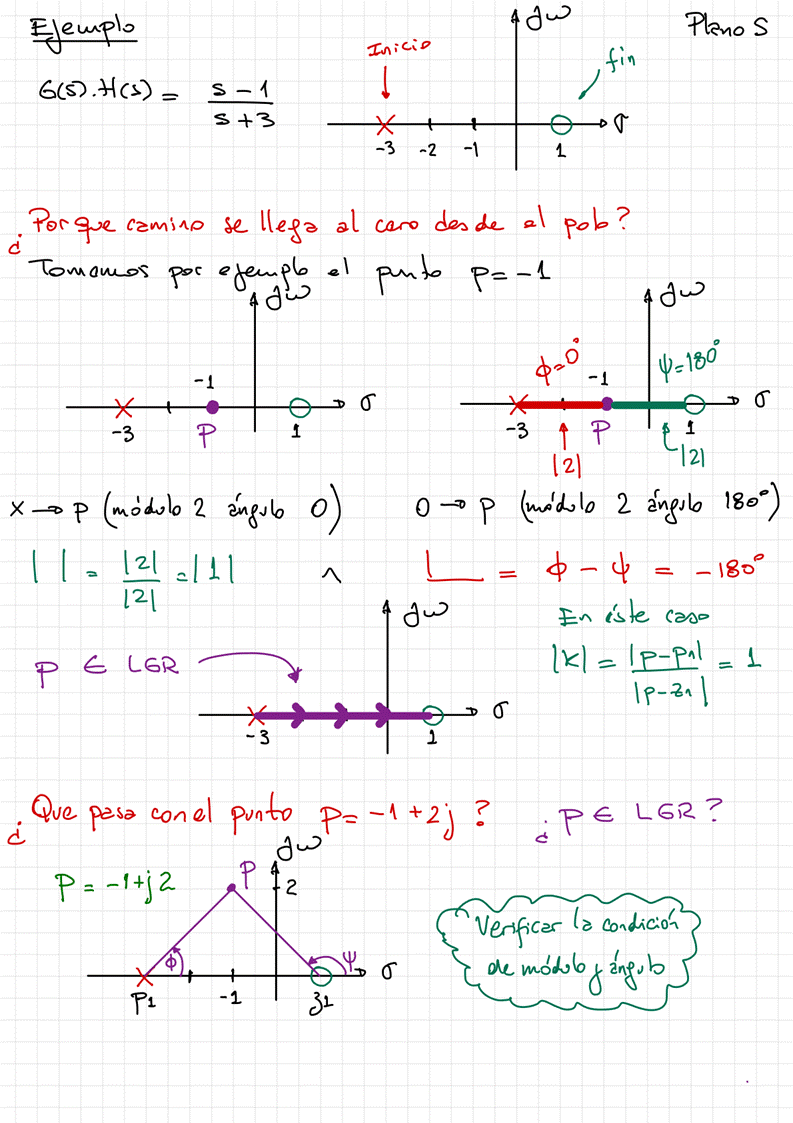 Ejemplo
jω
Plano S
Inicio
fin
G(s).H(s) = s-1 / s+3
σ
-3 -2 -1 1
¿Por que camino se llega al cero desde el polo?
Tomamos por ejemplo el punto P=-1
jω jω
ϕ=0° ψ=180°
-1 -1
σ σ
-3 P 1 -3 P 1
|2| |2|
X → P (módulo 2 ángulo 0) 0 → P (módulo 2 ángulo 180°)
| | = |2| / |2| = |1| ^ ∟ = ϕ - ψ = -180°
jω
En éste caso
P ∈ LGR
|K| = |p-p1| / |p-z1| = 1
σ
-3 1
¿Que pasa con el punto P=-1+2j? ¿P ∈ LGR?
jω
P = -1+j2
P
2
Verificar la condición
de módulo y ángulo
ϕ ψ σ
P1 -1 z1